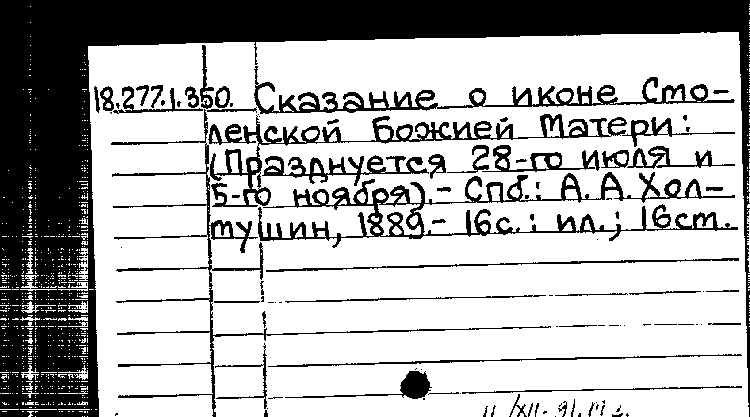 18.277.1.350. Сказание о иконе Смо-
ленской Божией Матери:
(Празднуется 28-го июля и
5-го ноября).- Спб.: А.А.Хол-
тушин, 1889.- 16с.: ил.; 16см.